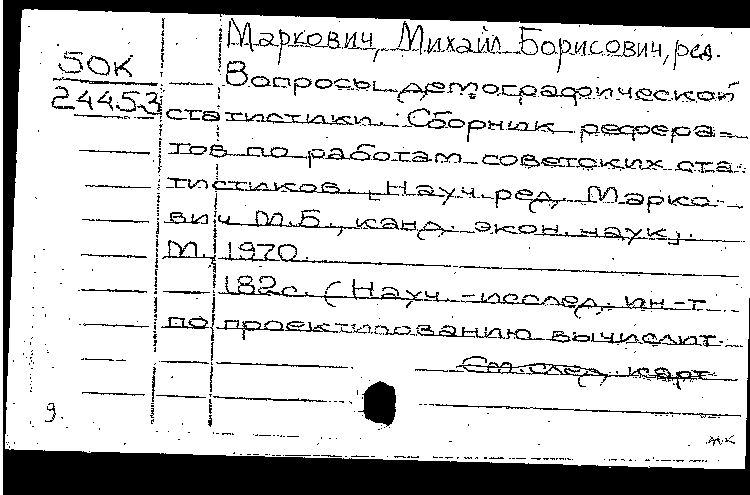 Маркович, Михаил Борисович, ред.
SOK
24453
Вопросы демографической
статистики. Сборник рефера-
тов по работам советских ста-
тистиков. [Науч. ред. Марко-
вич М.Б., канд. экон. наук].
М., 1970.
182с. (Науч.-исслед. ин-т
по проектированию вычислит.
См. след. карт.
9.